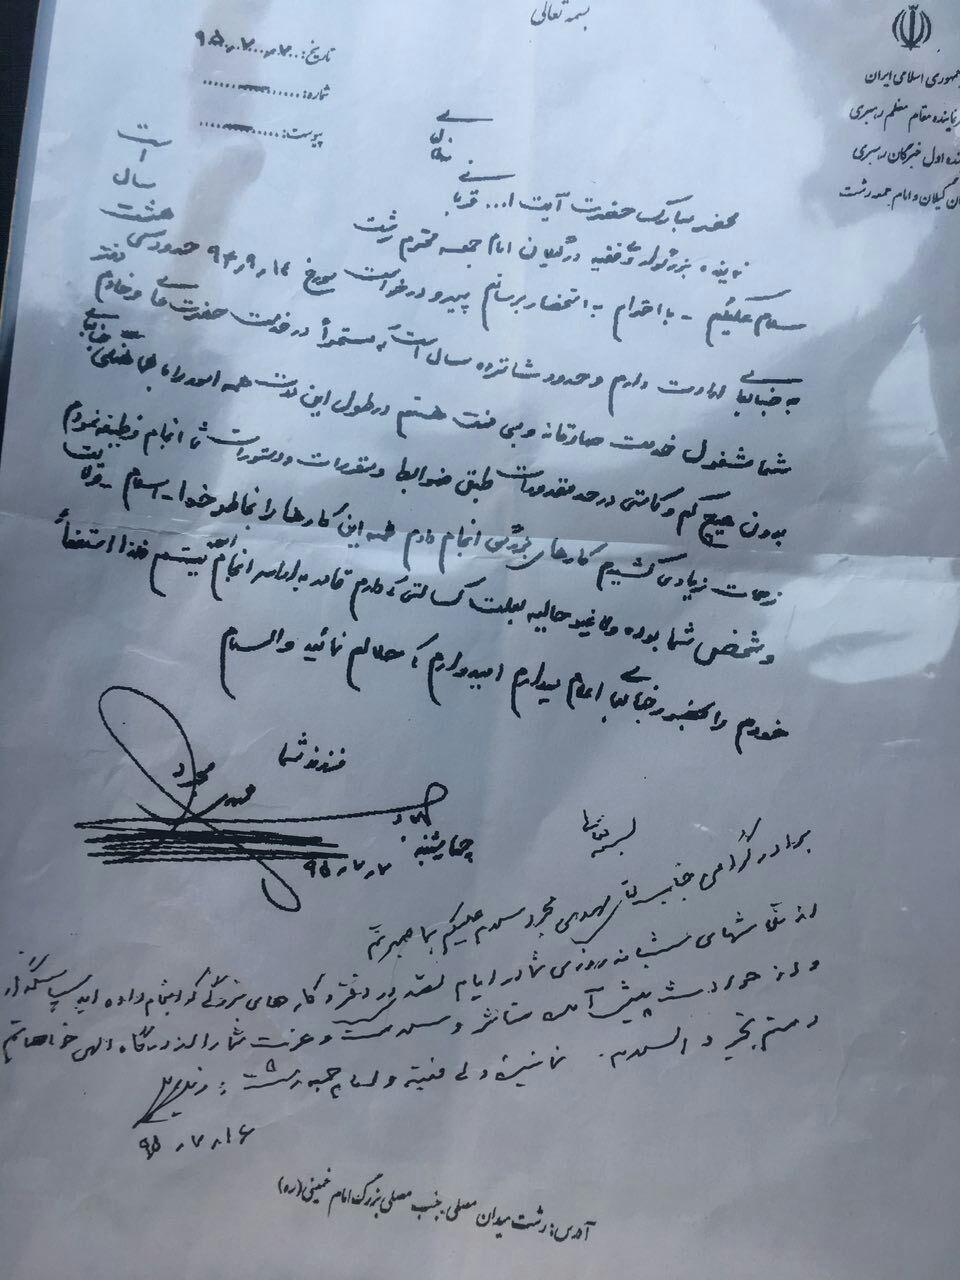 بسمه تعالی
جمهوری اسلامی ایران
نماینده مقام معظم رهبری
نماینده اول خبرگان رهبری
گیلان و امام جمعه رشت
تاریخ: ۹۵٫۷٫۷
شماره:
پیوست:
محضر مبارک حضرت آیت ا... قربانی
نماینده بزرگوار ولی فقیه در گیلان امام جمعه محترم رشت
سلام علیکم - با احترام به استحضار میرسانم پیرو درخواست مورخ ۹۴٫۹٫۱۴ حدود سی هشت سال است
به جنابعالی ارادت دارم و حدود شانزده سال است که مستمراً در خدمت حضرتعالی و خادم دفتر
شما مشغول خدمت صادقانه و بی منت هستم در طول این مدت همه امور را
بدون هیچ کم و کاستی در حد مقدورات طبق ضوابط و مقررات و دستورات شما انجام وظیفه نمودم
زحمات زیادی کشیدم کارهای بزرگی انجام دادم همه این کارها را بخاطر خدا - اسلام - ولایت
و شخص شما بوده حالیه بعلت کسالتی که دارم قادر به ادامه انجام نیستم لذا استعفاً
خودم را محضر جنابعالی اعلام میدارم امیدوارم که حلالم نمائید والسلام
فرزند شما
مهدی مجرد
چهارشنبه
۹۵٫۷٫۷
بسمه تعالی
برادر گرامی جناب آقای مهدی مجرد سلام علیکم با
از تلاشهای شبانه روزی شما در ایام تصدی در دفتر و کارهای بزرگی که انجام داده اید سپاسگزار
و از حوادث پیش آمده متأثر و سلامت و عزت شما را از درگاه الهی خواهانم
والسلام. نماینده ولی فقیه و امام جمعه رشت:
۹۵٫۷٫۱۶
آدرس: رشت میدان مصلی، جنب مصلی بزرگ امام خمینی (ره)